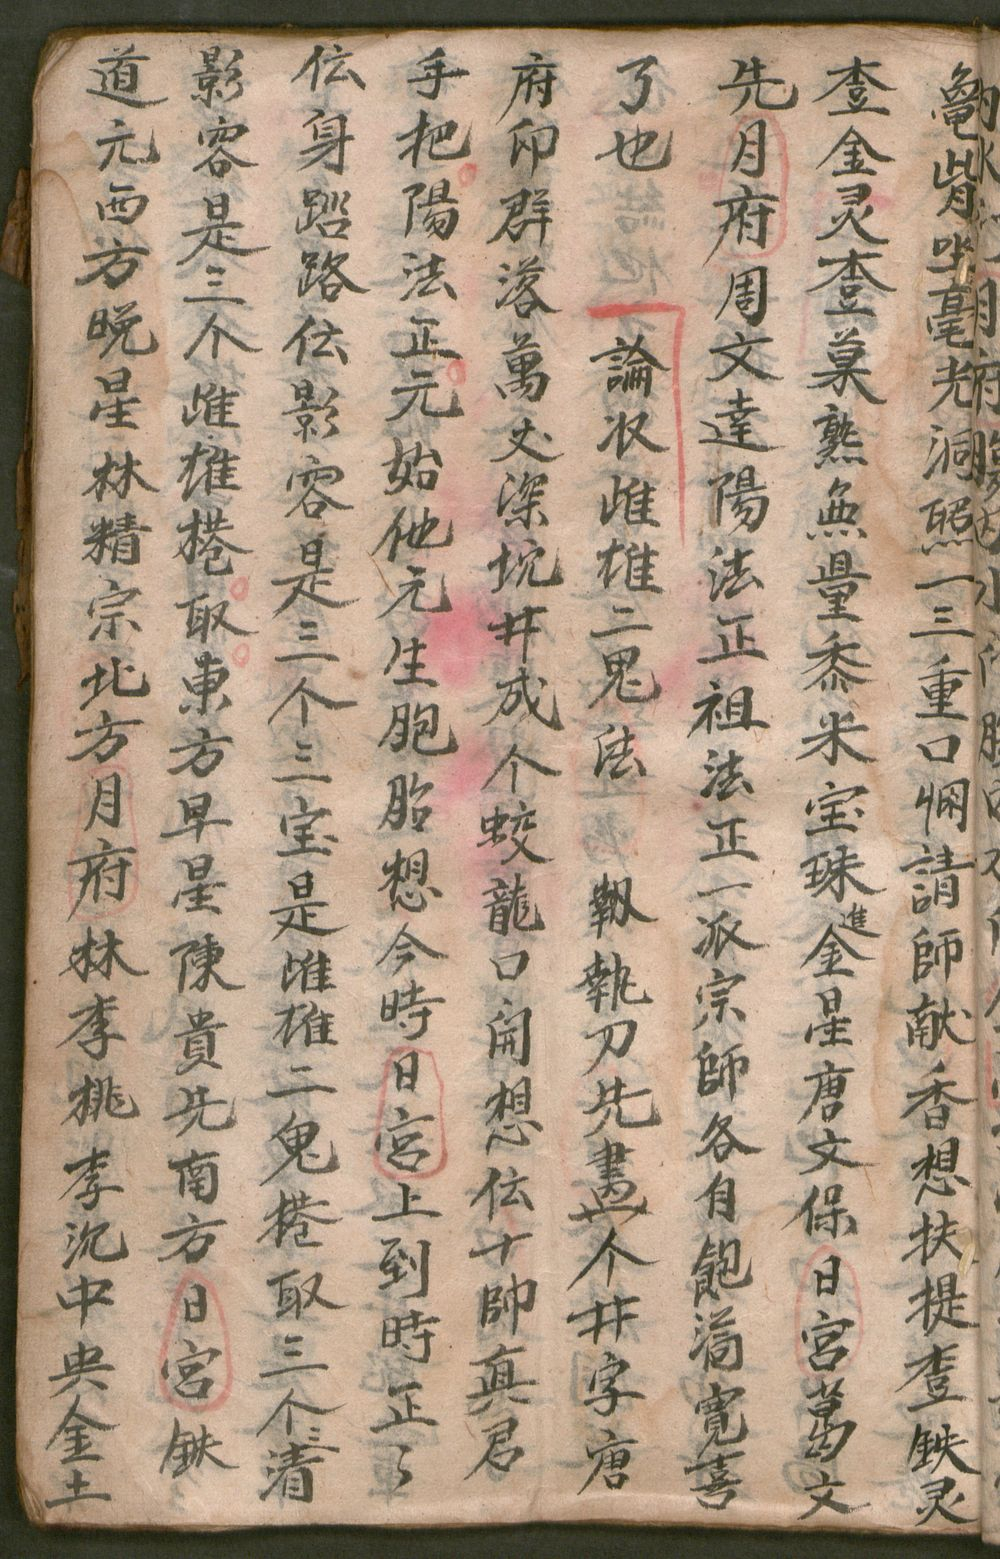 龟背坐毫光洞照一三重口悃請師献香想扶提查鉄灵
查金灵查菓熟無量黍米宝珠進金星唐文保日宮萬文
先月府周文達陽法正祖法正一派宗師各自飽满寛喜
了也 論收雌雄二鬼法 执執刀先畫个井字唐
府印群落萬丈深坑井成个蛟龍口開想伝十帥真君
手把陽法正元始他元生胞胎想今時日宮上到時正了
伝身踏路伝影容是三个三宝是雌雄二鬼捲取三个三清
影容是三个雌雄捲取東方早星陳貴先南方日宮鉄
道元西方晚星林精宗北方月府林李桃李沉中央金土